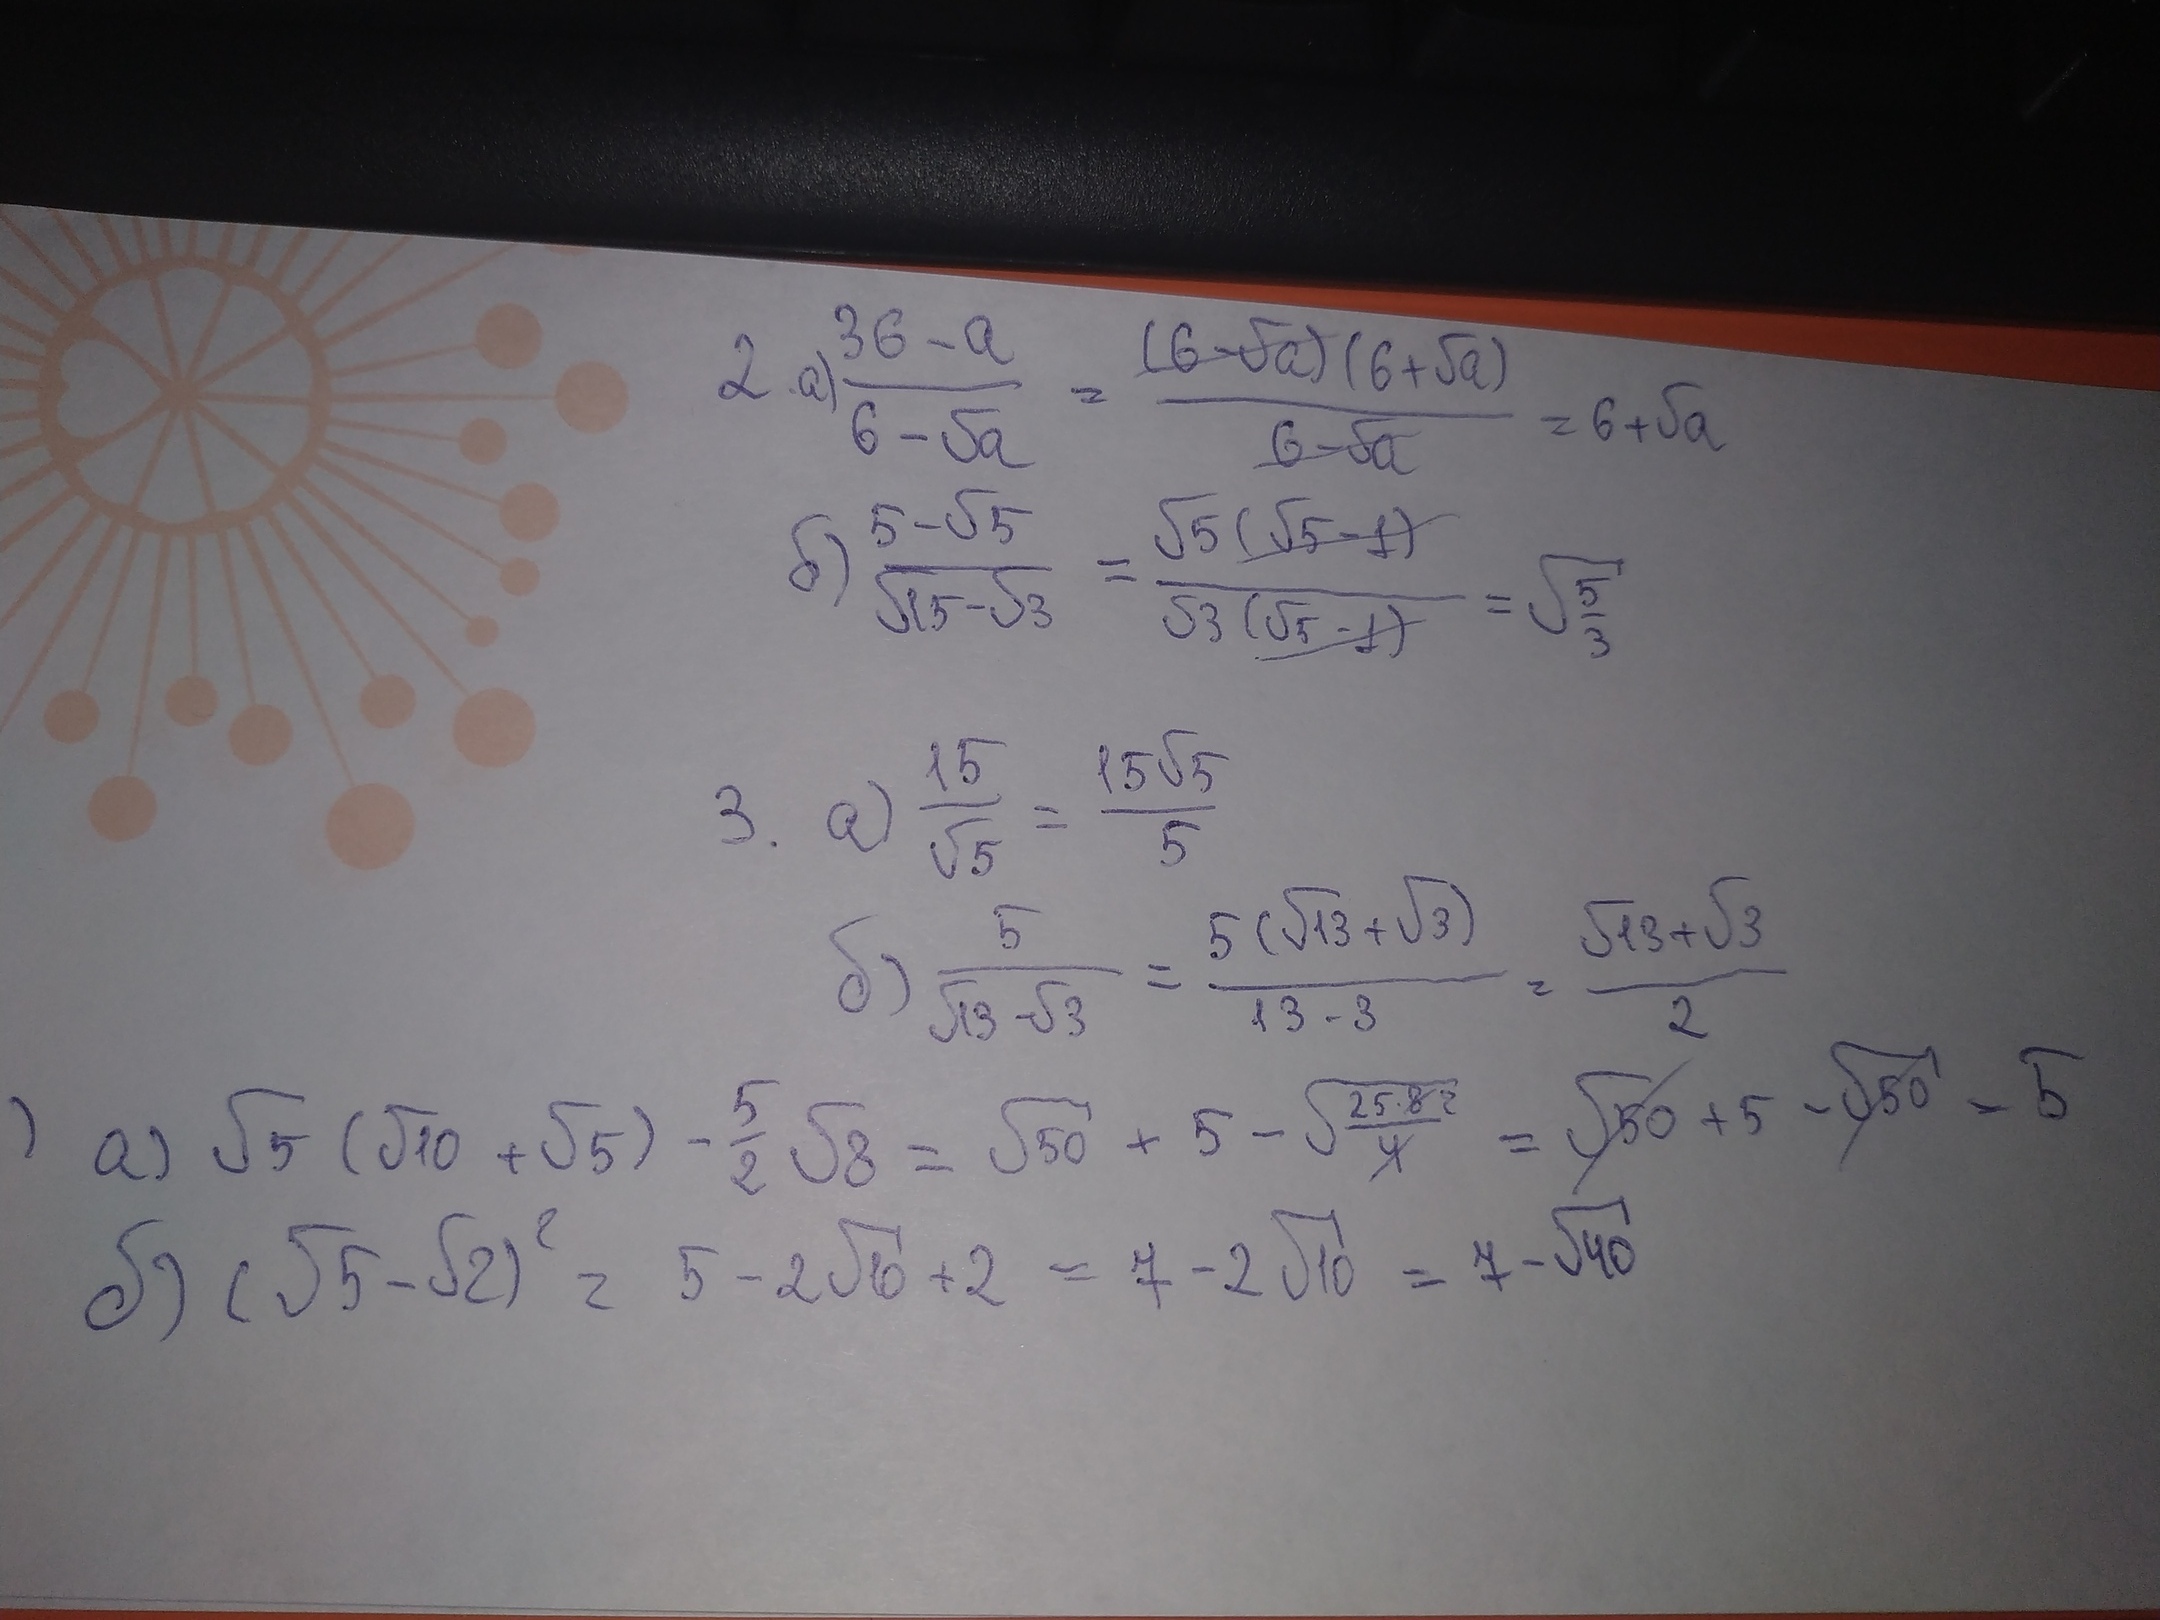 2. а) (36 - a)/(6 - √a) = ((6 - √a)(6 + √a))/(6 - √a) = 6 + √a
б) (5 - √5)/(√15 - √3) = (√5(√5 - 1))/(√3(√5 - 1)) = √(5/3)
3. а) 15/√5 = 15√5/5
б) 5/(√13 - √3) = (5(√13 + √3))/(13 - 3) = (√13 + √3)/2
) а) √5(√10 + √5) - 5/2 √8 = √50 + 5 - √(25·8 2/4) = √50 + 5 - √50 = 5
б) (√5 - √2)² = 5 - 2√10 + 2 = 7 - 2√10 = 7 - √40